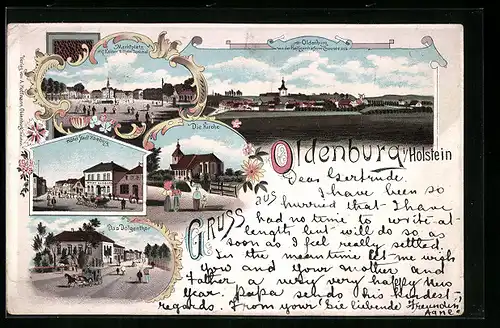 Marktplatz
mit Kaiser Wilhelm Denkmal
Oldenburg
Die Kirche
Hôtel Stadt Lübeck
Das Dolgenthor
GRUSS aus Oldenburg i/Holstein
Dear Gertrude.
I have been so
hurried that I have
had no time to write at
length, but will do so as
soon as I feel really settled.
In the meantime let me wish
you and your mother and
Father a very very happy New
Year. Papa sends his kindest
regards. From your Sie liebende Freundin